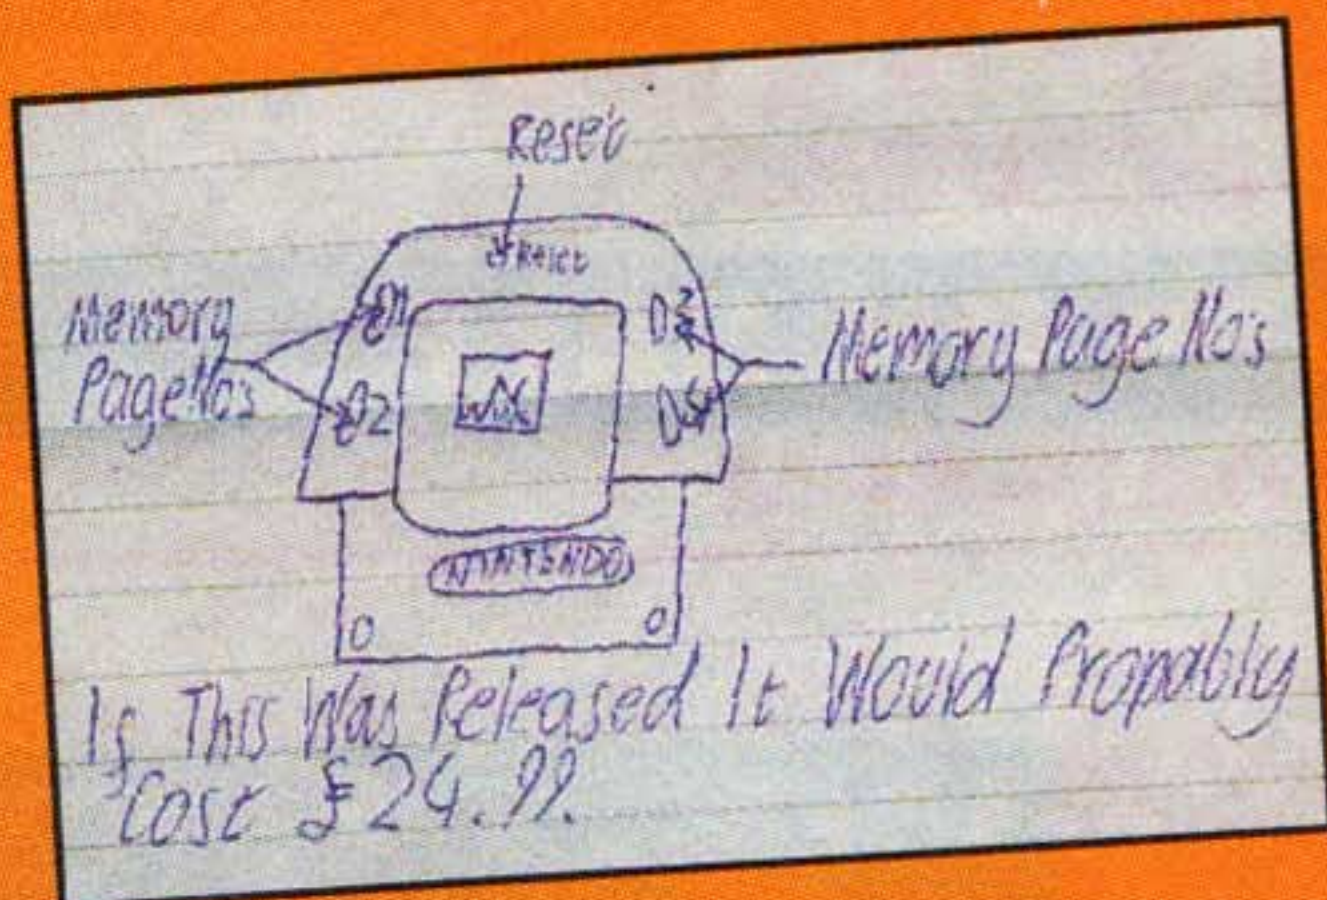 Reset
Reset
Memory
Page No's
1
2
3
Memory Page No's
NINTENDO
If This Was Released It Would Propably
Cost £24.99.